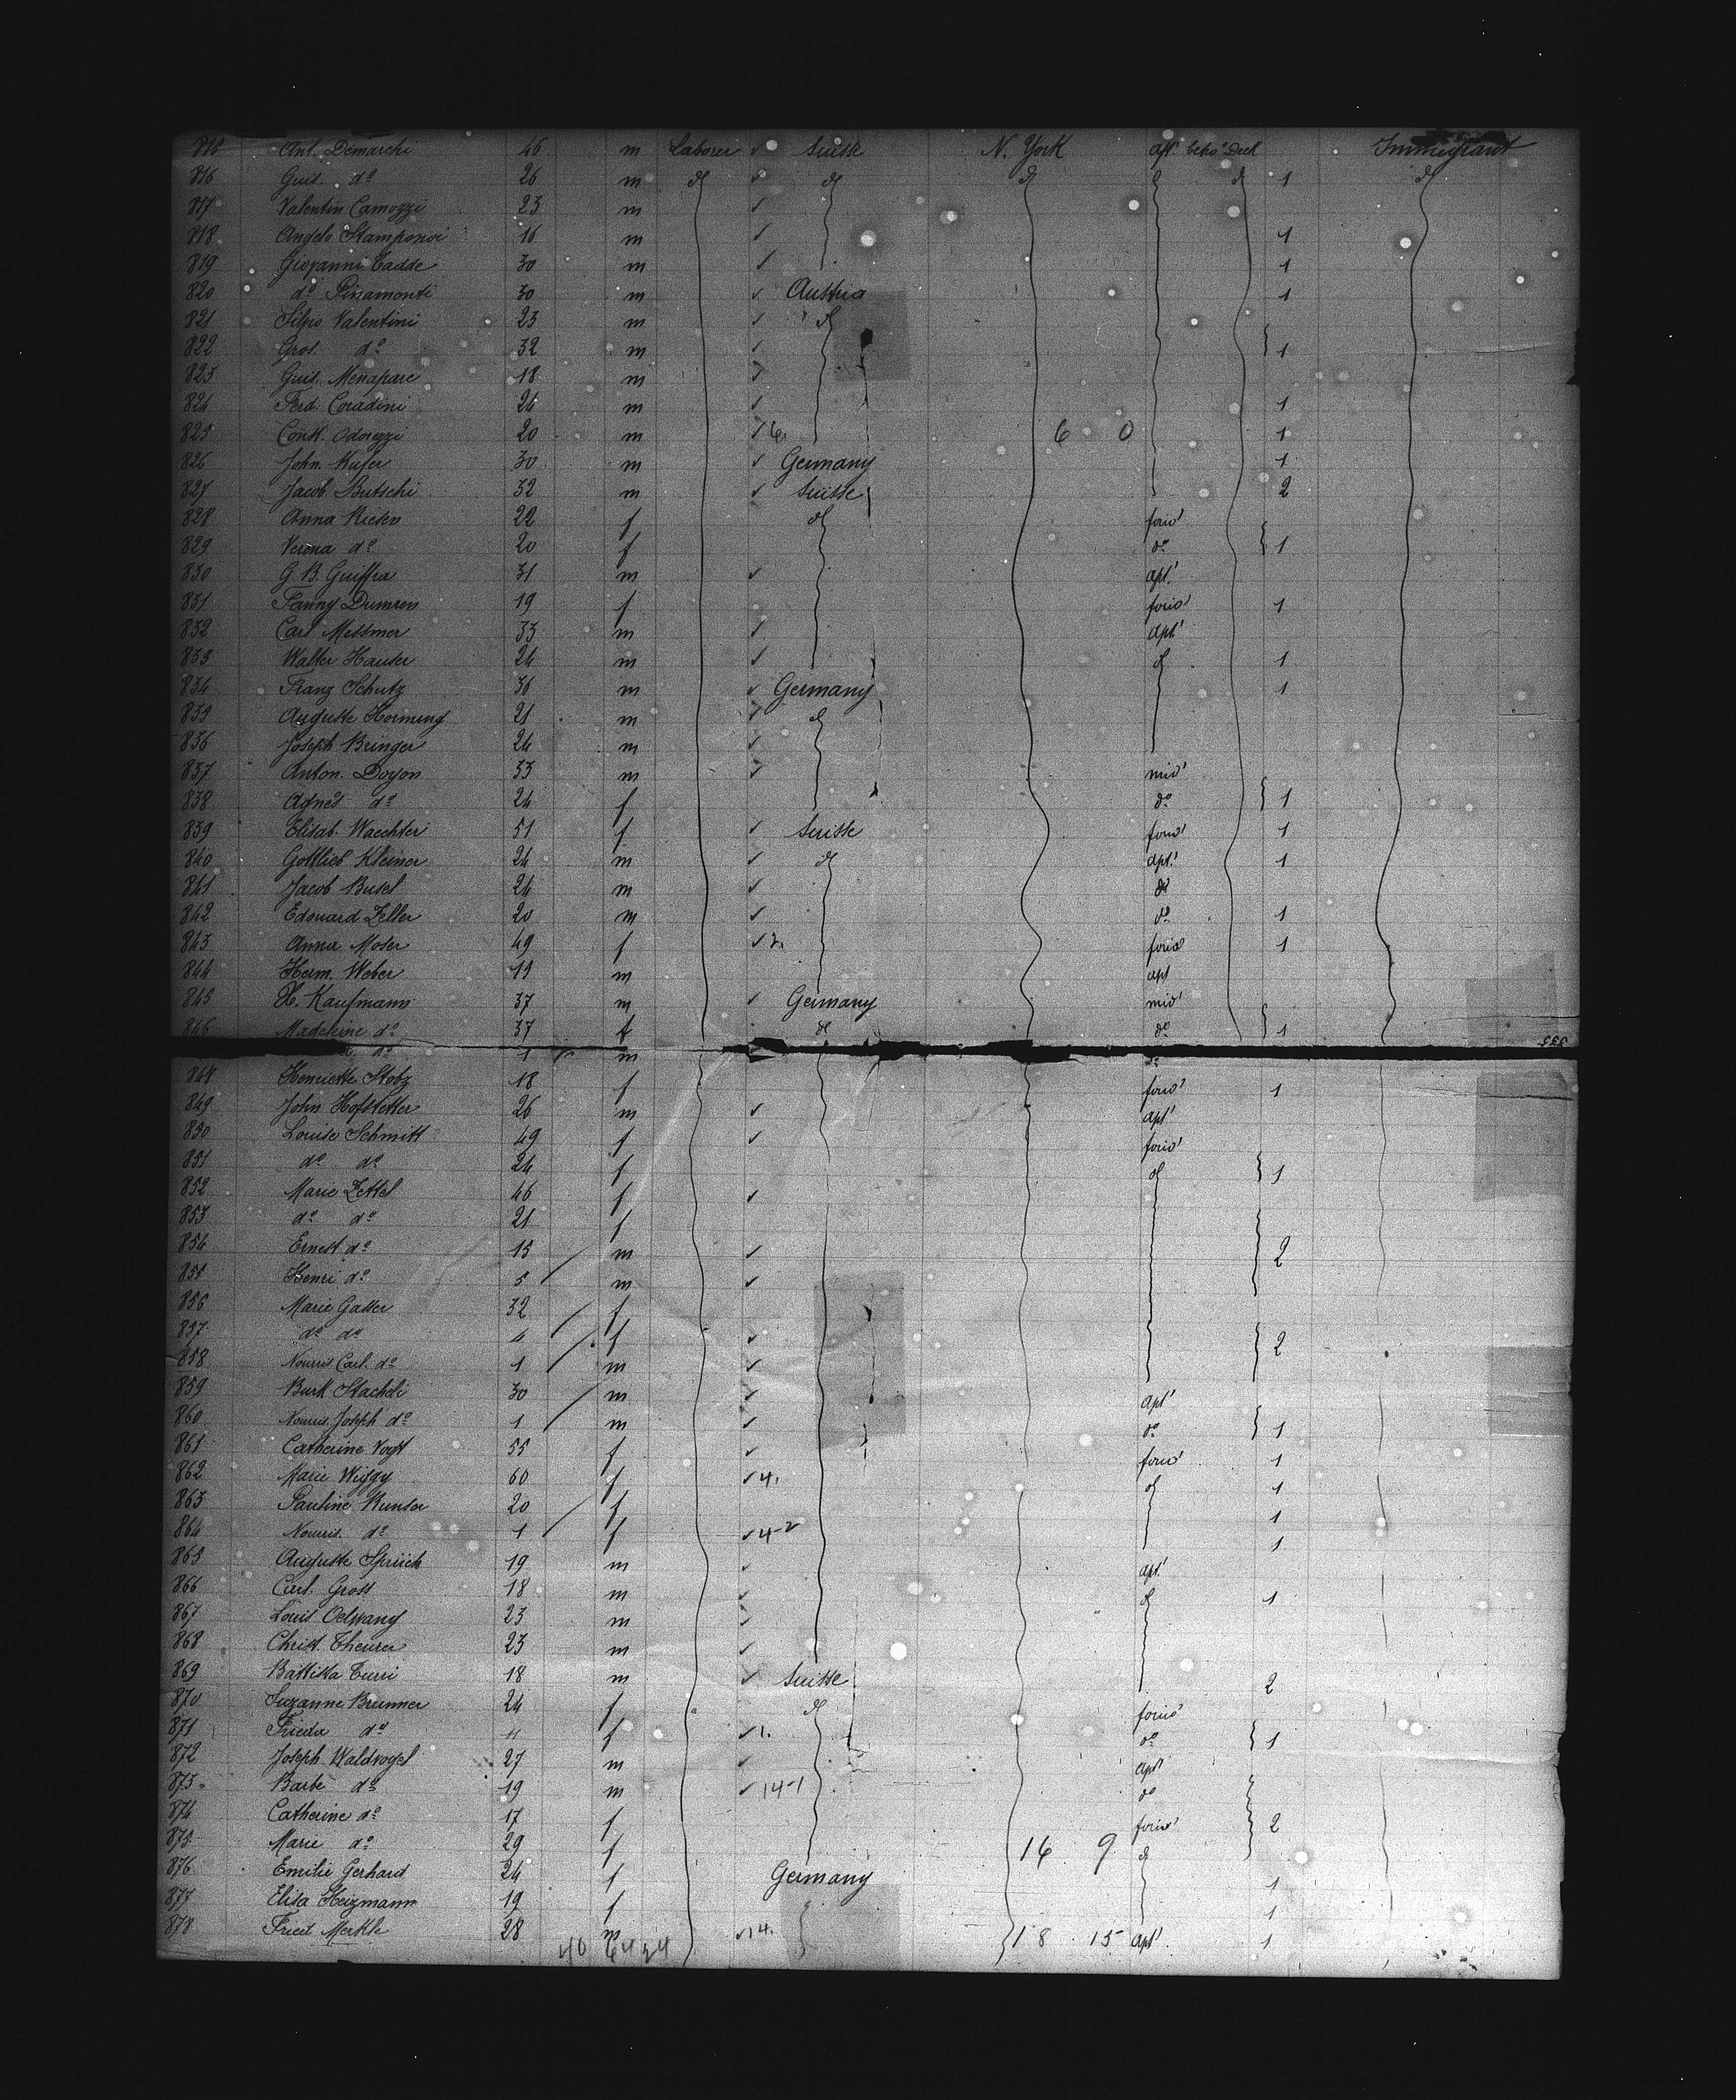 815 Ant. Demarchi 46 m Laborer ✓ Suisse N. York aft. betw. Deck Immigrant
816 Guis. do 26 m do ✓ do do do 1 do
817 Valentin Camozzi 23 m ✓
818 Angelo Stamponoi 16 m ✓ 1
819 Giovanni Tadde 30 m ✓ 1
820 do Pinamonti 30 m ✓ Austria 1
821 Silpio Valentini 23 m ✓ do
822 Gros. do 32 m ✓ 1
823 Guis. Menapare 18 m ✓
824 Ferd. Coradini 24 m ✓ 1
825 Const. Odorizzi 20 m ✓ 6. 6 0 1
826 John. Kufer 30 m ✓ Germany 1
827 Jacob Butschi 32 m ✓ Suisse 2
828 Anna Rieben 22 f do forw'
829 Verona do 20 f do 1
830 G. B. Guiffra 31 m ✓ apt.'
831 Fanny Dumren 19 f forw' 1
832 Carl Messmer 33 m ✓ apt'
833 Walter Hauser 24 m ✓ do 1
834 Franz Schutz 36 m ✓ Germany 1
835 Auguste Horning 21 m ✓ do
836 Joseph Bringer 24 m ✓
837 Anton. Doyon 33 m ✓ mid'
838 Agnes do 24 f do 1
839 Elisab. Waechter 51 f ✓ Suisse forw' 1
840 Gottlieb Kleiner 24 m ✓ do apt.' 1
841 Jacob Busel 24 m ✓ do
842 Edouard Zeller 20 m ✓ do 1
843 Anna Moser 49 f ✓ 7. forw' 1
844 Herm. Weber 19 m apt
845 H. Kaufmann 37 m ✓ Germany mid'
846 Madeleine do 37 f do do 1
do 1 m do
848 Henriette Stotz 18 f forw' 1
849 John Hofstetter 26 m ✓ apt'
850 Louise Schmitt 49 f ✓ forw'
851 do do 24 f do 1
852 Marie Zettel 46 f ✓
853 do do 21 f
854 Ernest do 15 m ✓ 2
855 Henri do 5 m ✓
856 Marie Gasser 32 f
857 do do 4 f ✓ 2
858 Nourris Carl. do 1 m ✓
859 Burk Stacheli 30 m ✓ apt'
860 Nourris. Joseph do 1 m ✓ do 1
861 Catherine Vogt 55 f ✓ forw' 1
862 Marie Wiggy 60 f ✓ 4. do 1
863 Pauline Kunser 20 f 1
864 Nourris. do 1 f ✓ 4-2 1
865 Auguste Sprüch 19 m ✓ apt.'
866 Carl. Gross 18 m ✓ do 1
867 Louis Oelwang 23 m ✓
868 Christ. Theurer 23 m ✓
869 Battista Turri 18 m ✓ Suisse 2
870 Suzanne Brunner 24 f do forw'
871 Frieda do 11 f ✓ 1. do 1
872 Joseph Waldvogel 27 m ✓ apt'
873 Barbe do 19 m ✓ 14-1 do
874 Catherine do 17 f forw' 2
875 Marie do 29 f 16 9 do
876 Emilie Gerhard 24 f Germany 1
877 Elisa Heizmann 19 f 1
878 Fried Merkle 28 m ✓ 14. 18 15 apt' 1
40 64 24